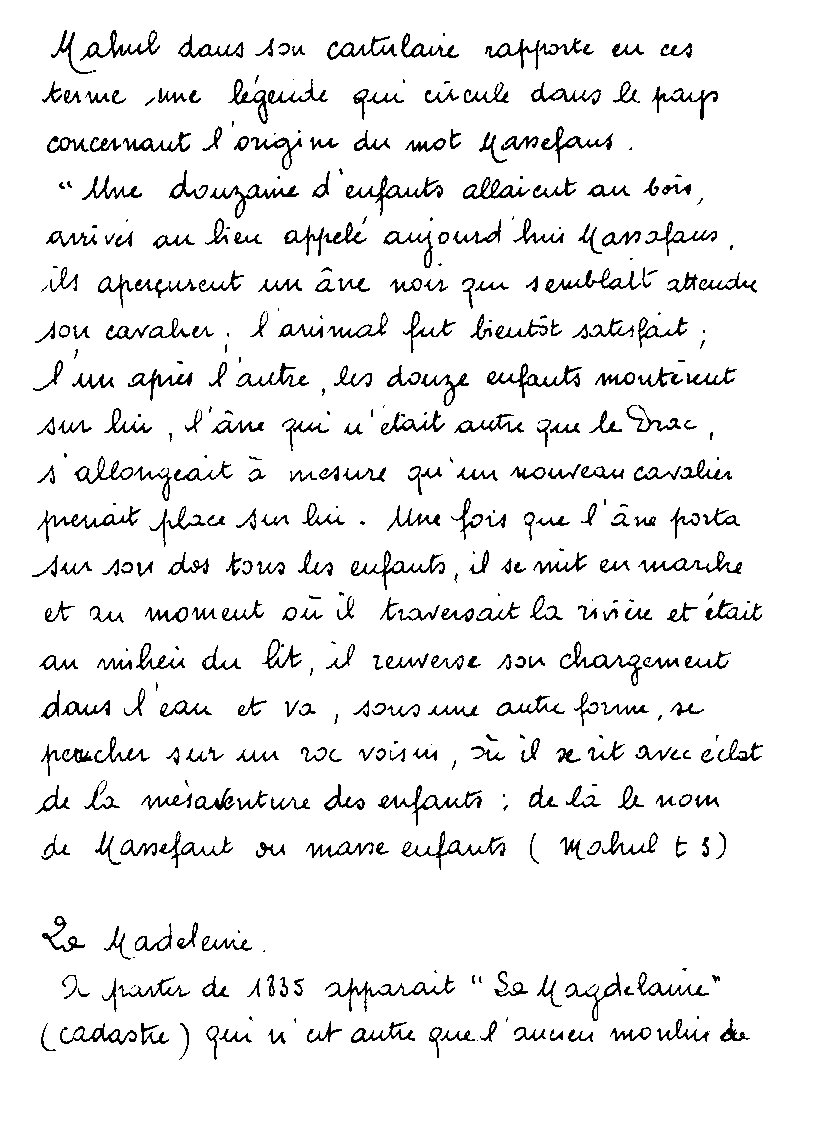 Mahul dans son cartulaire rapporte en ces
terme une légende qui circule dans le pays
concernant l'origine du mot Massefans.
" Une douzaine d'enfants allaient au bois,
arrivés au lieu appelé aujourd'hui Massafans,
ils aperçurent un âne noir qui semblait attendre
son cavalier ; l'animal fut bientôt satisfait ;
l'un après l'autre, les douze enfants montèrent
sur lui, l'âne qui n'était autre que le Drac,
s'allongeait à mesure qu'un nouveau cavalier
prenait place sur lui. Une fois que l'âne porta
sur son dos tous les enfants, il se mit en marche
et au moment où il traversait la rivière et était
au milieu du lit, il renverse son chargement
dans l'eau et va, sous une autre forme, se
percher sur un roc voisin, où il se rit avec éclat
de la mésaventure des enfants ; de là le nom
de Massefant ou masse enfants ( Mahul t 3)
La Madeleine.
A partir de 1835 apparait "La Magdelaine"
(cadastre) qui n'est autre que l'ancien moulin de